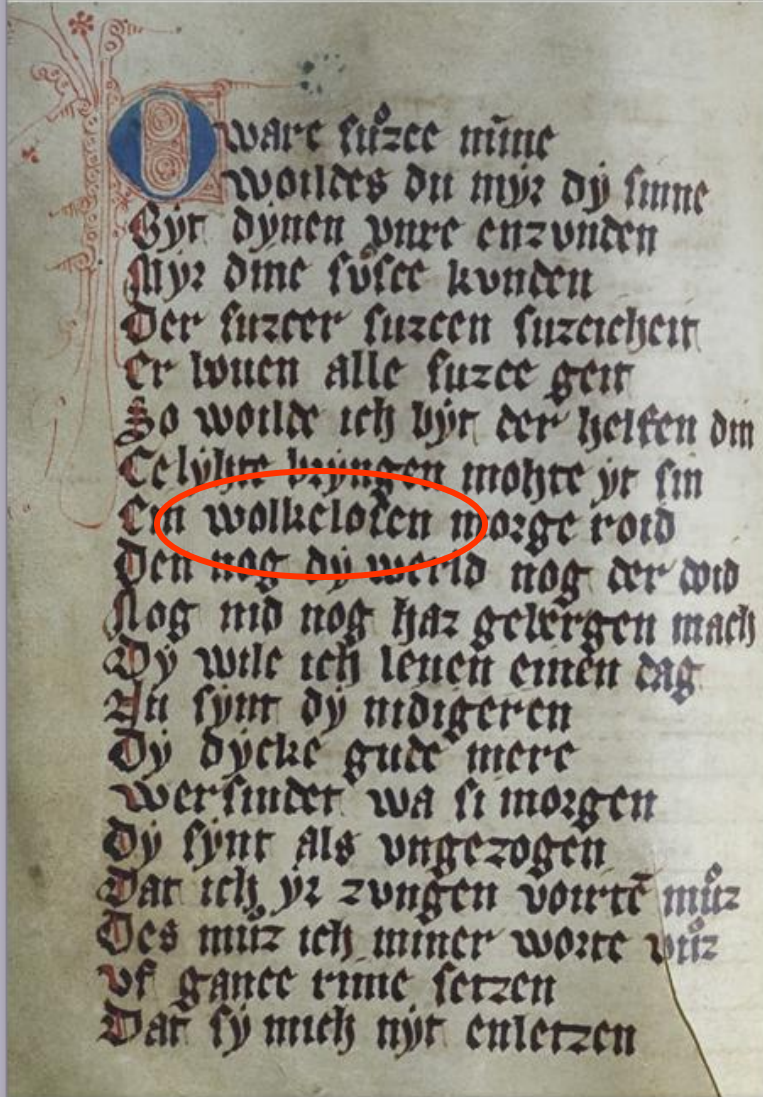 O ware suͦzce mīne
woildes du myr dy sinne
Byt dynen vure enzvnden
Myr dine svͦsce kvnden
Der suzcer suzcen suzcicheit
Er bouen alle suzce geit
So woilde ich byt der helfen din
Te lyhte bryngen mohte yt sin
Ein wolkelosen morge roid
Den nog dy werld nog der doid
Nog nid nog haz gelezgen mach
Dy wile ich leuen einen dag
Nu synt dy nidigeren
Dy dycke gude mere
Wersindet wa si morgen
Dy synt als vngezogen
Dat ich yr zvngen voirtē muͦz
Des muͦz ich miner worte vuͦz
Vf gance rime setzen
Dat sy mich nyt enletzen